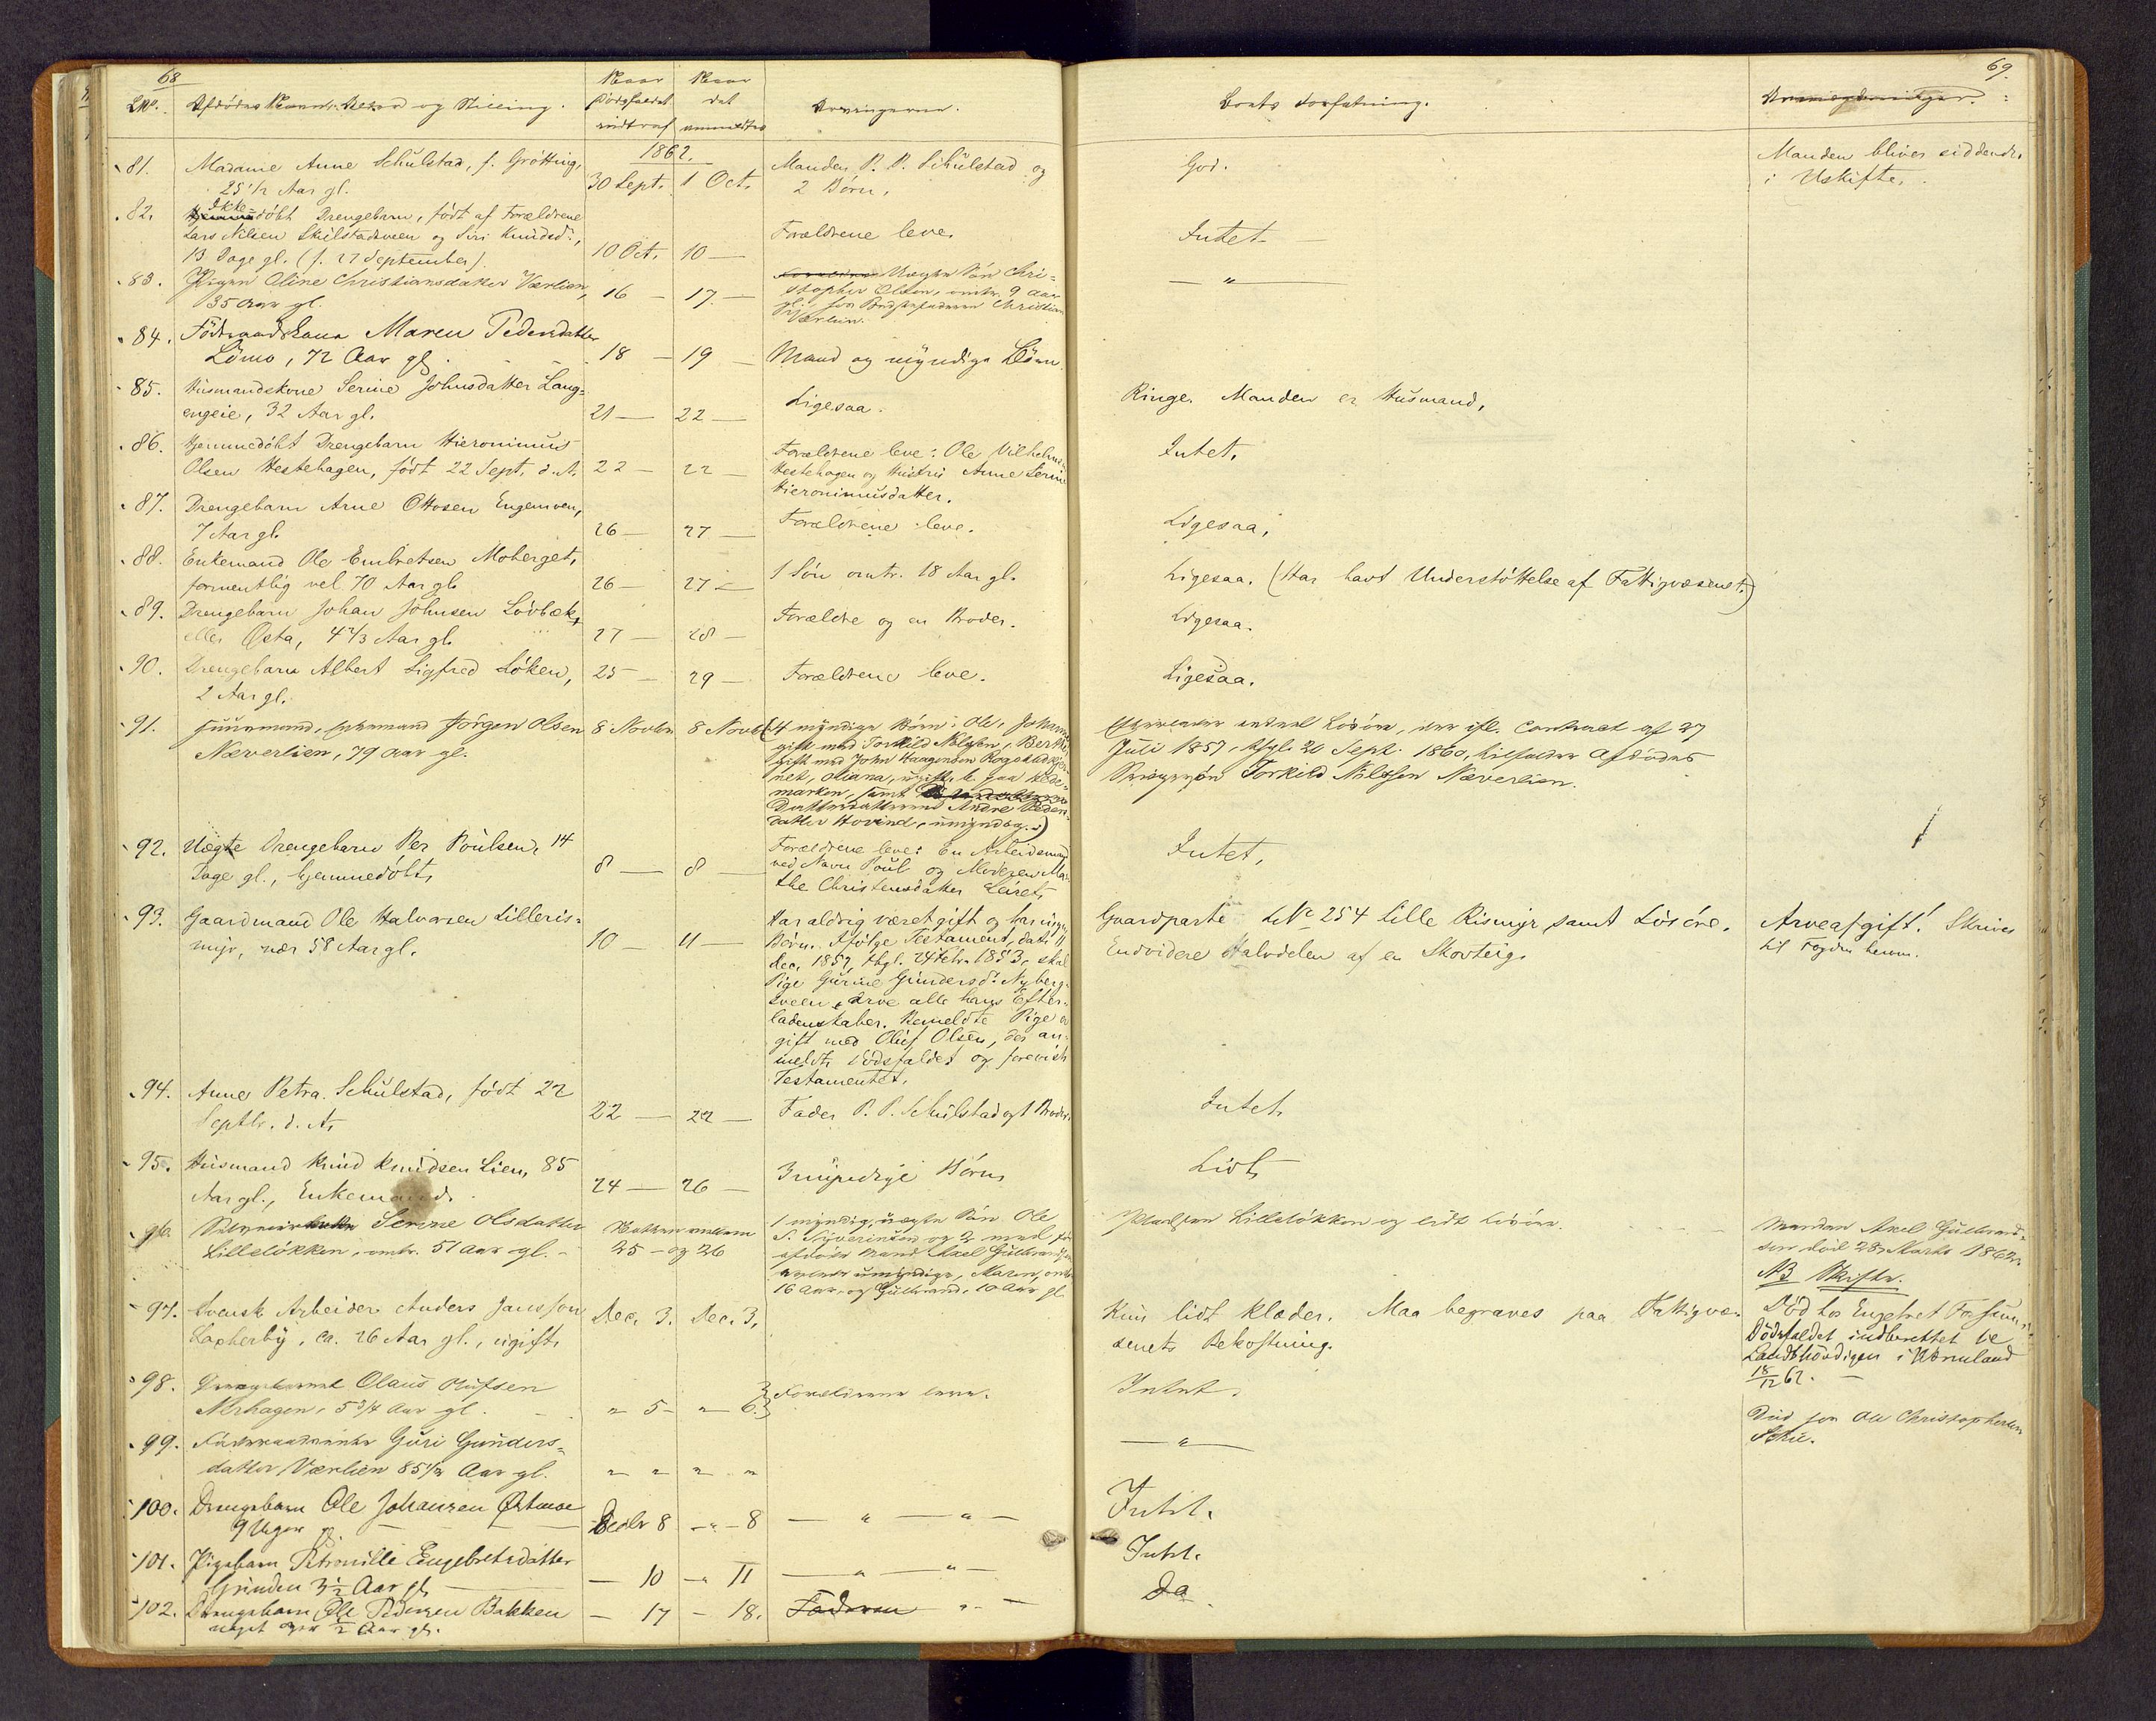 68
LNo. Afdødes Navn, Alder og Stilling. Naar Dødsfaldet indtraf Naar det anmeldtes Arvingerne. Boets Forfatning. Anmærkninger. 69.
1862.
81. Madame Anne Schülstad, f. Grötting, 30 Sept. 1 Oct. Manden P. P. Schülstad og God. Manden bliver siddende
25 1/2 Aar gl. 2 Börn. i Uskifte.
82. Ikke-döbt Drengebarn, födt af Forældrene
Lars Nilsen Skülstadsveen og Siri Knudsd:, Forældrene leve. Intet
13 Dage gl. (f. 27 September). 10 Oct. 10 —
83. Pigen Oline Christiansdatter Værlien, 16 — 17 — Uægte Sön Chri= — " —
35 Aar gl. stopher Olsen, omtr. 9 Aar
gl., hos Bedstefaderen Christian
Værlien.
84. Föderaadskone Maren Pedersdatter
Lömo, 72 Aar gl. 18 — 19 — Mand og myndige Börn.
85. Husmandskone Serine Johnsdatter Lang= Ringe. Manden er Husmand.
engeie, 32 Aar gl. 21 — 22 — Ligesaa.
86. Hjemmedöbt Drengebarn Hieronimus Forældrene leve: Ole Vilhelms Intet.
Olsen Hestehagen, födt 22 Sept. d. A. 22 — 22 — Hestehagen og Hustru Anne Serine
Hieronimusdatter.
87. Drengebarn Arne Ottosen Engemoen, Forældrene leve. Ligesaa.
7 Aar gl. 26 — 27 —
88. Enkemand Ole Embretsen Moberget,
formentlig vel 70 Aar gl. 26 — 27 — 1 Sön omtr. 18 Aar gl. Ligesaa. (Har havt Understöttelse af Fattigvæsenet.)
89. Drengebarn Johan Johnsen Lövbæk, Forældre og en Broder. Ligesaa.
eller Osta, 4 2/3 Aar gl. 27 — 28 —
90. Drengebarn Albert Sigfred Löken, 25 — 29 — Forældrene leve. Ligesaa.
2 Aar gl.
91. Jörgen Olsen 8 Novbr 8 Novb (4 myndige Börn: Ole, Johanne Contract af 27
Næverlien, 79 Aar gl. gift med Torkild Nilsen, Berthe, Juli 1857, thgl. 20 Sept. 1860, tilfalder Afdödes
gift med John Haagensen Rogstadkjer= Svigersön Torkild Nilsen Næverlien.
net, Oliana, ugift, p. paa Hede=
marken, samt
Datterdatteren Andre Peders=
datter Hovind, umyndig.)
92. Uægte Drengebarn Per Poulsen, 14 Forældrene leve: En Arbeidsmand Intet.
Dage gl., hjemmedöbt. 8 — 8 — ved Navn Poul og Moderen Mar=
the Christensdatter Leiret.
93. Gaardmand Ole Halvorsen Lilleris= Har aldrig været gift og har ingen Gaardparte LNo 254 Lille Rismyr samt Lösöre. Arveafgift! Skrives
myr, nær 58 Aar gl. 10 — 11 — Börn. Ifölge Testament, dat. 11 Endvidere Halvdelen af en Skovteig. til Fogden herom.
Dec. 1852, thgl. 24 Febr. 1853, skal
Pige Gurine Gundersd: Nyberg=
sveen arve alle hans Efter=
ladenskaber. Bemeldte Pige er
gift med Oluf Olsen, der an=
meldte Dödsfaldet og foreviste
Testamentet.
94. Anne Petra Schülstad, födt 22 Intet.
Septbr. d. A. 22 — 22 — Fader P. P. Schülstad og 1 Broder.
95. Husmand Knud Knudsen Lien, 85 Lidt.
Aar gl., Enkemand. 24 — 26 — 3 myndige Börn
96. Serine Olsdatter Natten mellem 1 myndig, uægte Sön Ole Pladsen Lillelökken og lidt Lösöre. Manden Axel Gulbrand=
Lillelökken, omtr. 51 Aar gl. 25 — og 26 S. Syverinsen og 2 med för sen död 28 Marts 1862.
afdöde Mand Axel Gulbrandsen NB Skifte.
umyndige, Maren, omtr.
16 Aar, og Gulbrand, 10 Aar gl.
97. Svensk Arbeider Anders Jansson Dec. 3. Dec. 3. Kun lidt Klæder. Maa begraves paa Fattigvæ= Död hos Engebret
Laxherby, ca. 26 Aar gl., ugift. senets Bekostning. Dödsfaldet indberettet til
Landshövdigen i Wermland
18/12 62. —
98. Drengebarnet Olaus Olufsen Forældrene leve. Intet.
Nerhagen, 5 3/4 Aar gl. " 5 — " 6.
99. Guri Gunders= — " — Död hos Ole Christophersen
datter Værlien 85 1/2 Aar gl. " " " "
100. Drengebarn Ole Johansen Östmoe Decbr 8 — " — 8 — " — " — Intet.
9 Uger gl.
101. Pigebarn Petronille Engebretsdatter Intet.
Grinden 3 1/2 Aar gl. — 10 — " 11 — " — " —
102. Drengebarn Ole Pedersen Bakken — 17 — 18. Faderen " — Do.
noget over 1/2 Aar gl.